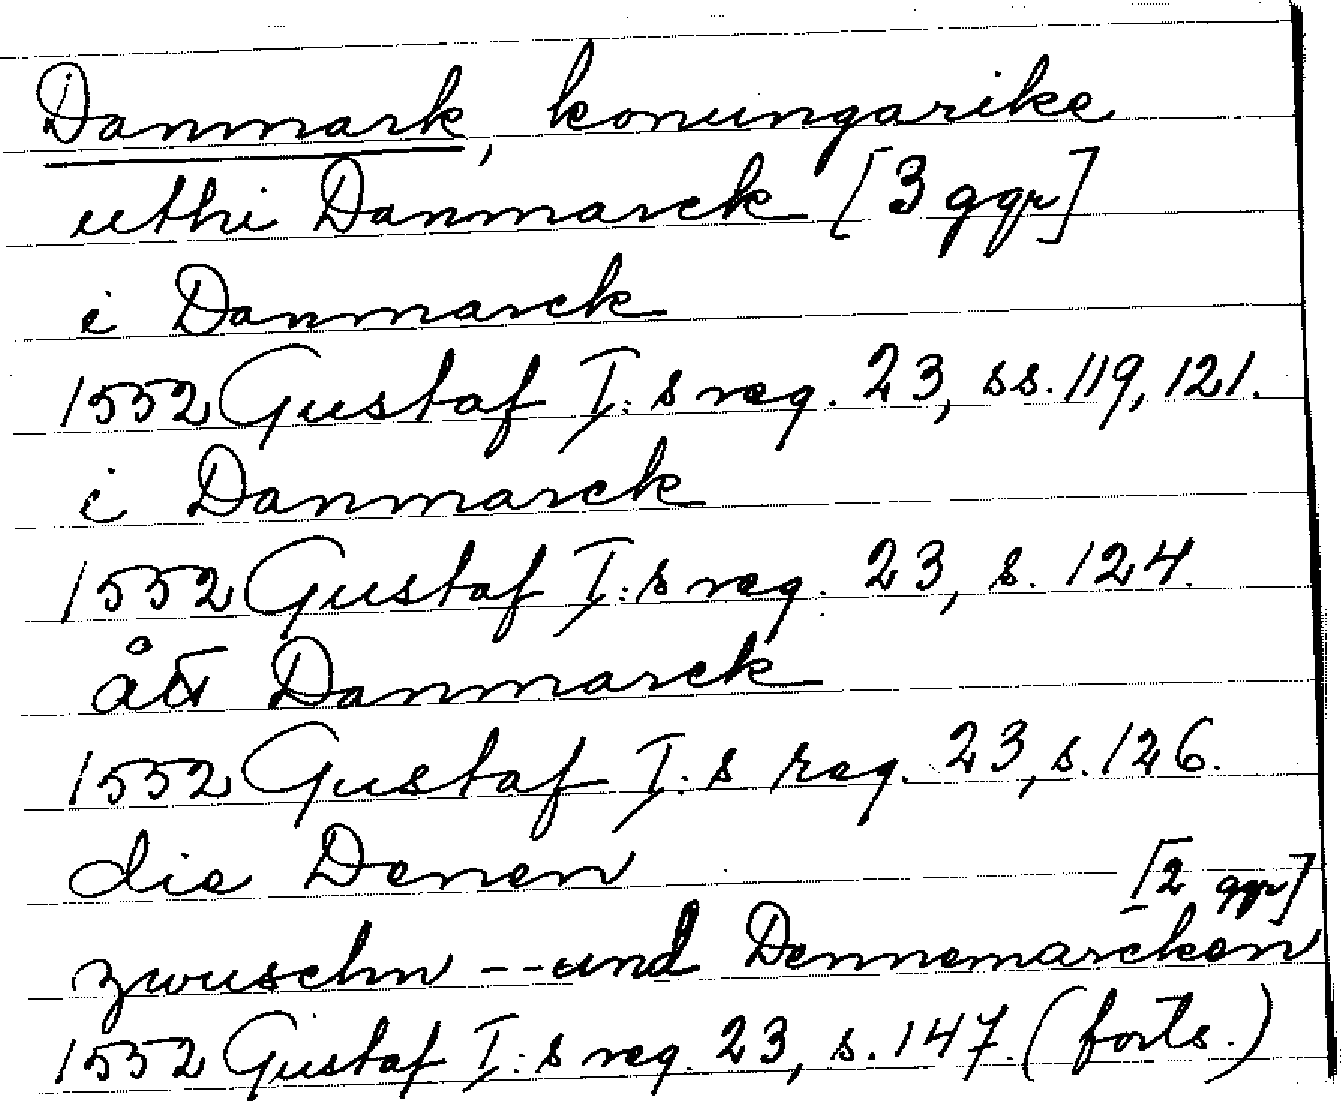 Danmark, konungarike
uthi Danmarck [3 ggr]
i Danmarck
1552 Gustaf I:s reg. 23, ss. 119, 121.
i Danmarck
1552 Gustaf I:s reg. 23, s. 124.
ått Danmarck
1552 Gustaf I:s reg. 23, s. 126.
die Denen [2 ggr]
zwuschn -- und Dennemarcken
1552 Gustaf I:s reg. 23, s. 147. (forts.)